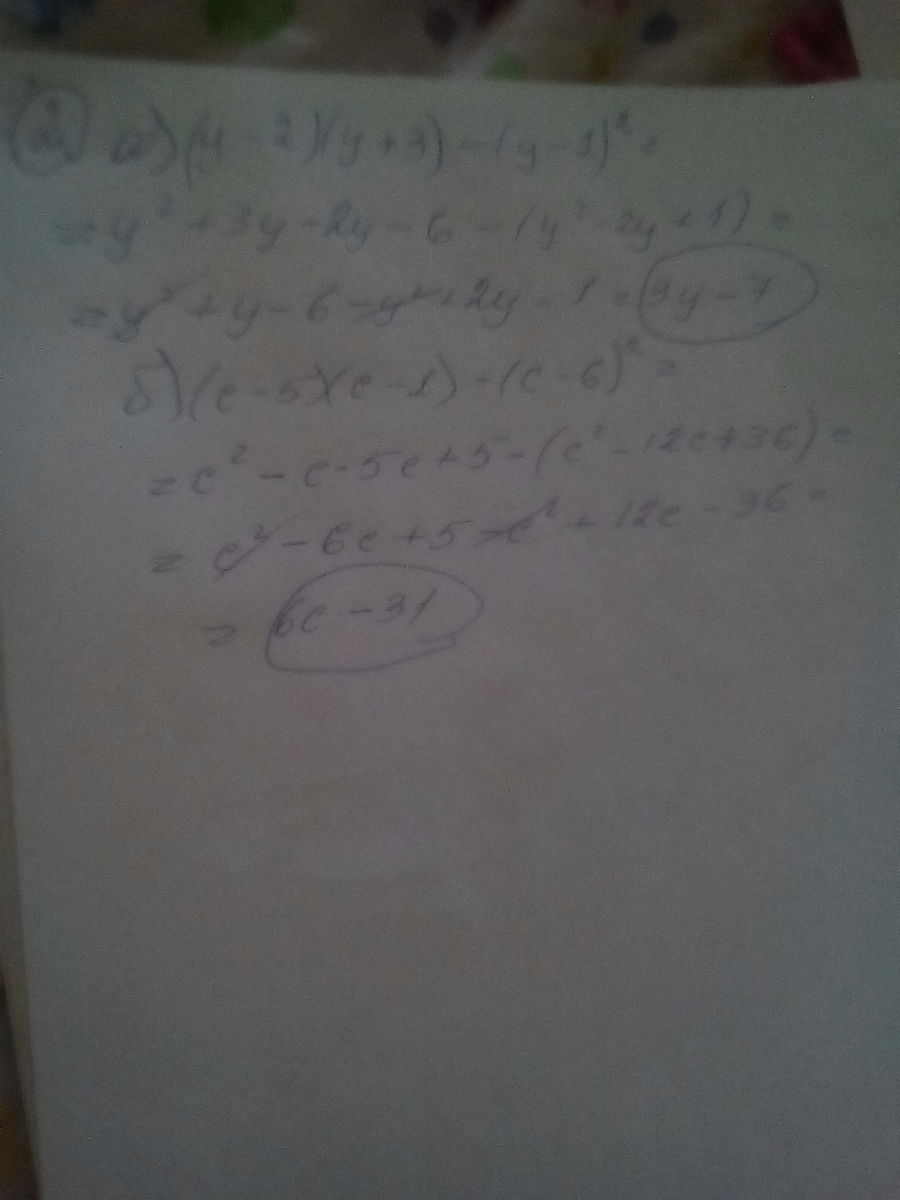 2 а) (y - 2)(y + 3) - (y - 1)² =
= y² + 3y - 2y - 6 - (y² - 2y + 1) =
= y² + y - 6 - y² + 2y - 1 = 3y - 7
б) (c - 5)(c - 1) - (c - 6)² =
= c² - c - 5c + 5 - (c² - 12c + 36) =
= c² - 6c + 5 - c² + 12c - 36 =
= 6c - 31